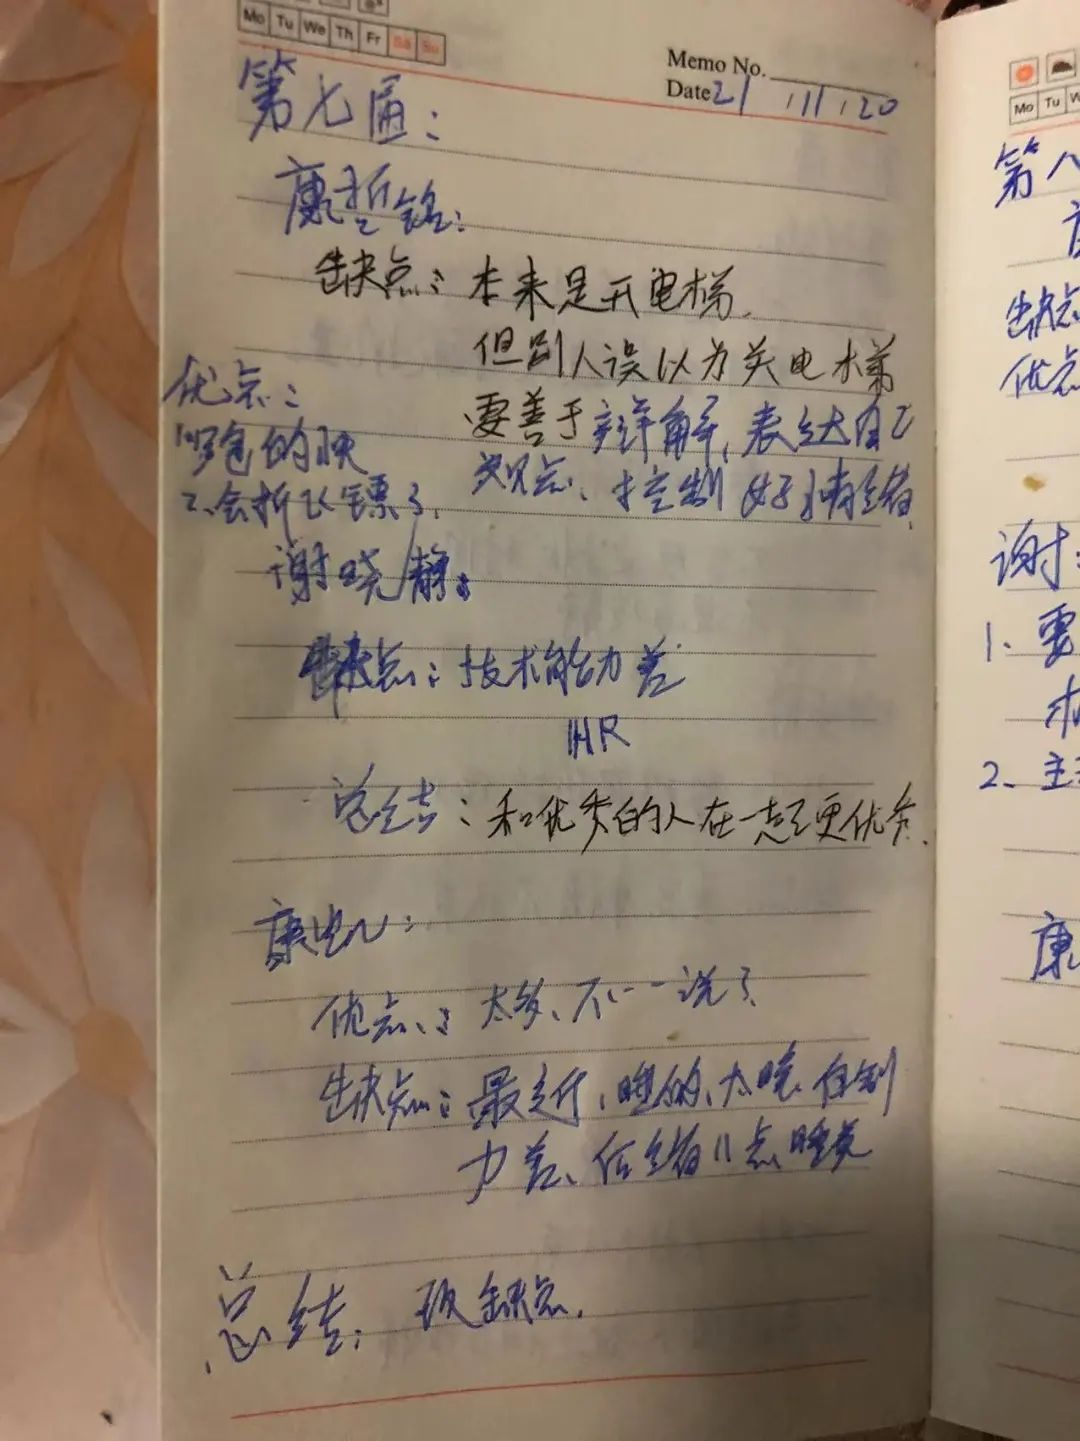 Mo Tu We Th Fr Sa Su
Memo No.
Date 21 / 11 / 20
第七届：
康哲铭：
缺点：本来是开电梯.
但别人误以为关电梯
要善于辩解，表达自己
观点、控制好情绪.
优点：
1吃的快
2、会折飞镖了.
谢晓静：
缺点：技术能力差
HR
总结：和优秀的人在一起更优秀.
康
优点：太多、不一一说了.
缺点：最近、睡的、太晚、自制
力差、后续11点睡觉
总结：改缺点.
Mo Tu
第八
缺点
优点
谢
1、要
2、主
康